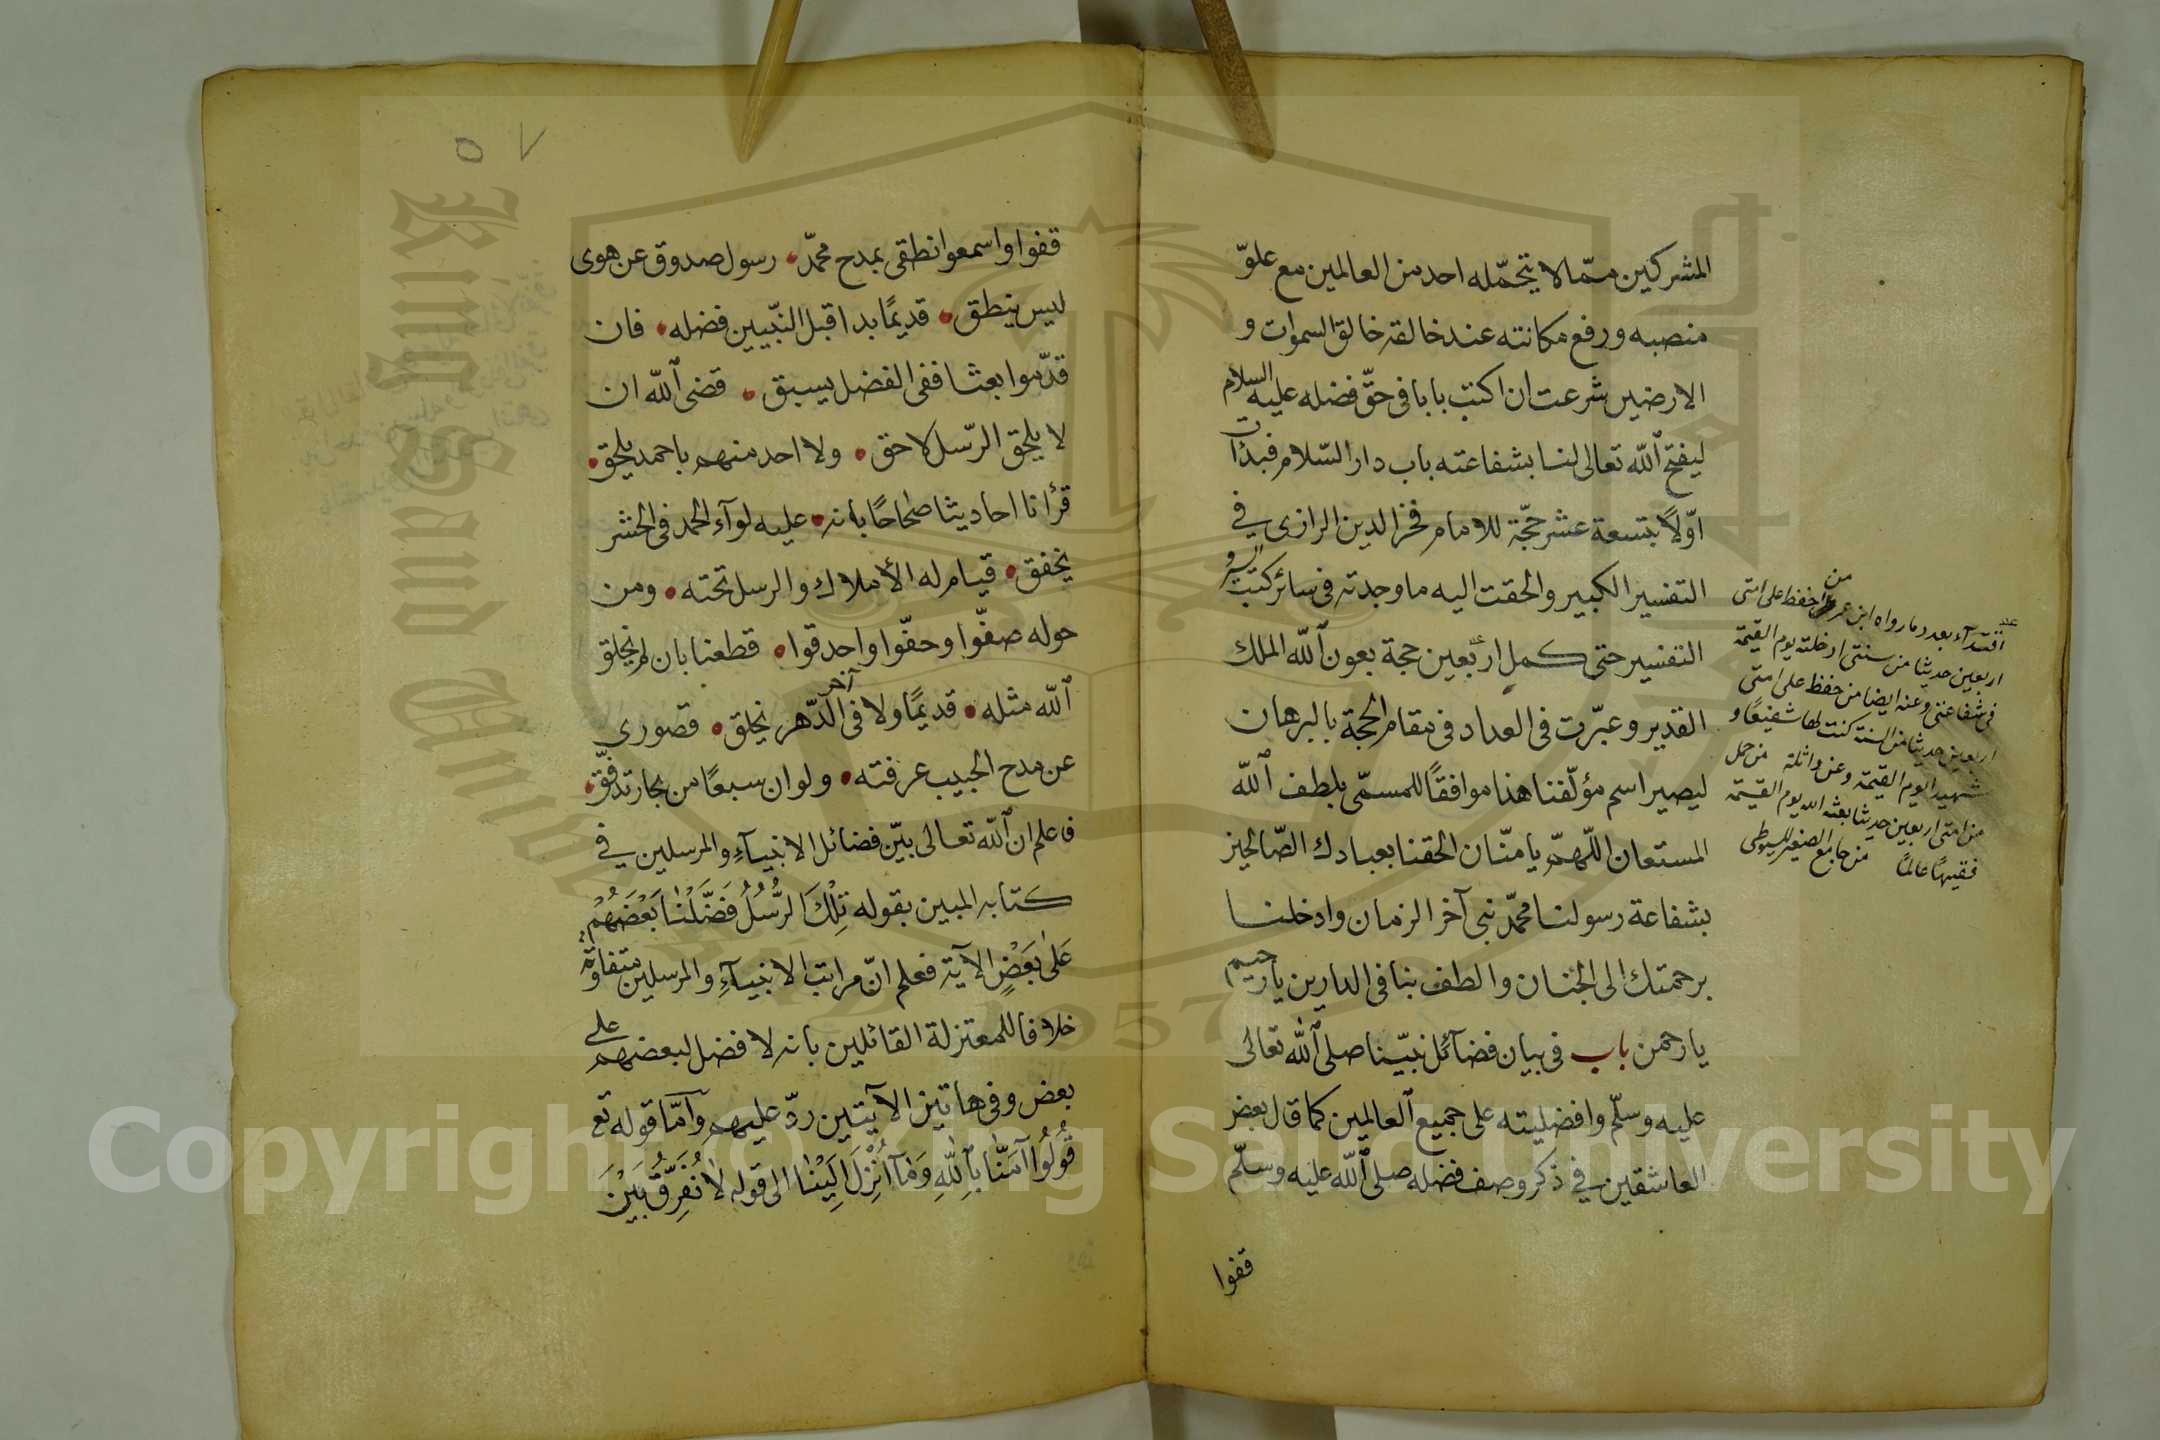 المشركين ممّا لا يتحمّله احد من العالمين مع علوّ
منصبه ورفع مكانته عند خالقه خالق السموات و
الارضين شرعت ان اكتب بابا فى حقّ فضله عليه السلام
ليفتح الله تعالى لنا بشفاعته باب دار السّلام فبدأت
اوّلاً بتسعة عشر حجّة للامام فخر الدين الرازى في
التفسير الكبير والحقت اليه ما وجدته فى سائر كتب السير و
التفسير حتى كمل اربعين حجة بعون الله الملك
القدير وعبّرت فى العداد فى مقام الحجة بالبرهان
ليصير اسم مؤلّفنا هذا موافقًا للمسمّى بلطف الله
المستعان اللّهمّ يا منّان الحقنا بعبادك الصّالحين
بشفاعة رسولنا محمّد نبى آخر الزمان وادخلنا
برحمتك الى الجنان والطف بنا فى الدارين يا رحيم
يا رحمن باب فى بيان فضآئل نبيّنا صلى الله تعالى
عليه وسلّم وافضليته على جميع العالمين كما قال بعض
العاشقين في ذكر وصف فضله صلى الله عليه وسلّم
قفوا
اقتدآء بعدد ما رواه ابن عمر من حفظ على امتى
اربعين حديثا من سنتى ادخلته يوم القيمة
فى شفاعتى وعنه ايضا من حفظ على امتى
اربعين حديثا من السنة كنت لها شفيعًا و
شهيدا يوم القيمة وعن واثلة من حمل
من امتى اربعين حديثا بعثه الله يوم القيمة
فقيهًا عالمًا من جامع الصغير للسيوطى
٥٧
قفوا واسمعوا نطقى بمدح محمّد رسول صدوق عن هوى
ليس ينطق قديمًا بدا قبل النبّيين فضله فان
قدّموا بعثا ففى الفضل يسبق قضى الله ان
لا يلحق الرّسل لاحق ولا احد منهم باحمد يلحق
قرأنا احاديثا صحاحًا بانه عليه لوآء الحمد فى الحشر
يخفق قيام له الأملاك والرسل تحته ومن
حوله صفّوا وحفّوا واحدقوا قطعنا بان لم يخلق
الله مثله قديمًا ولا فى آخر الدّهر يخلق قصورى
عن مدح الحبيب عرفته ولو ان سبعًا من بحار تدفّق
فاعلم ان الله تعالى بيّن فضائل الانبيآء والمرسلين في
كتابه المبين بقوله تِلْكَ الرُّسُلُ فَضَّلْنَا بَعْضَهُمْ
عَلٰى بَعْضٍ الآية فعلم انّ مراتب الانبيآءِ والمرسلين متفاوتة
خلافا للمعتزلة القائلين بانه لا فضل لبعضهم على
بعض وفى هاتين الآيتين ردّ عليهم وامّا قوله تع
قُولُوا آمَنَّا بِاللهِ وَمَآ اُنْزِلَ اِلَيْنَا الى قوله لَا نُفَرِّقُ بَيْنَ
King Saud University
1957
Copyright © King Saud University